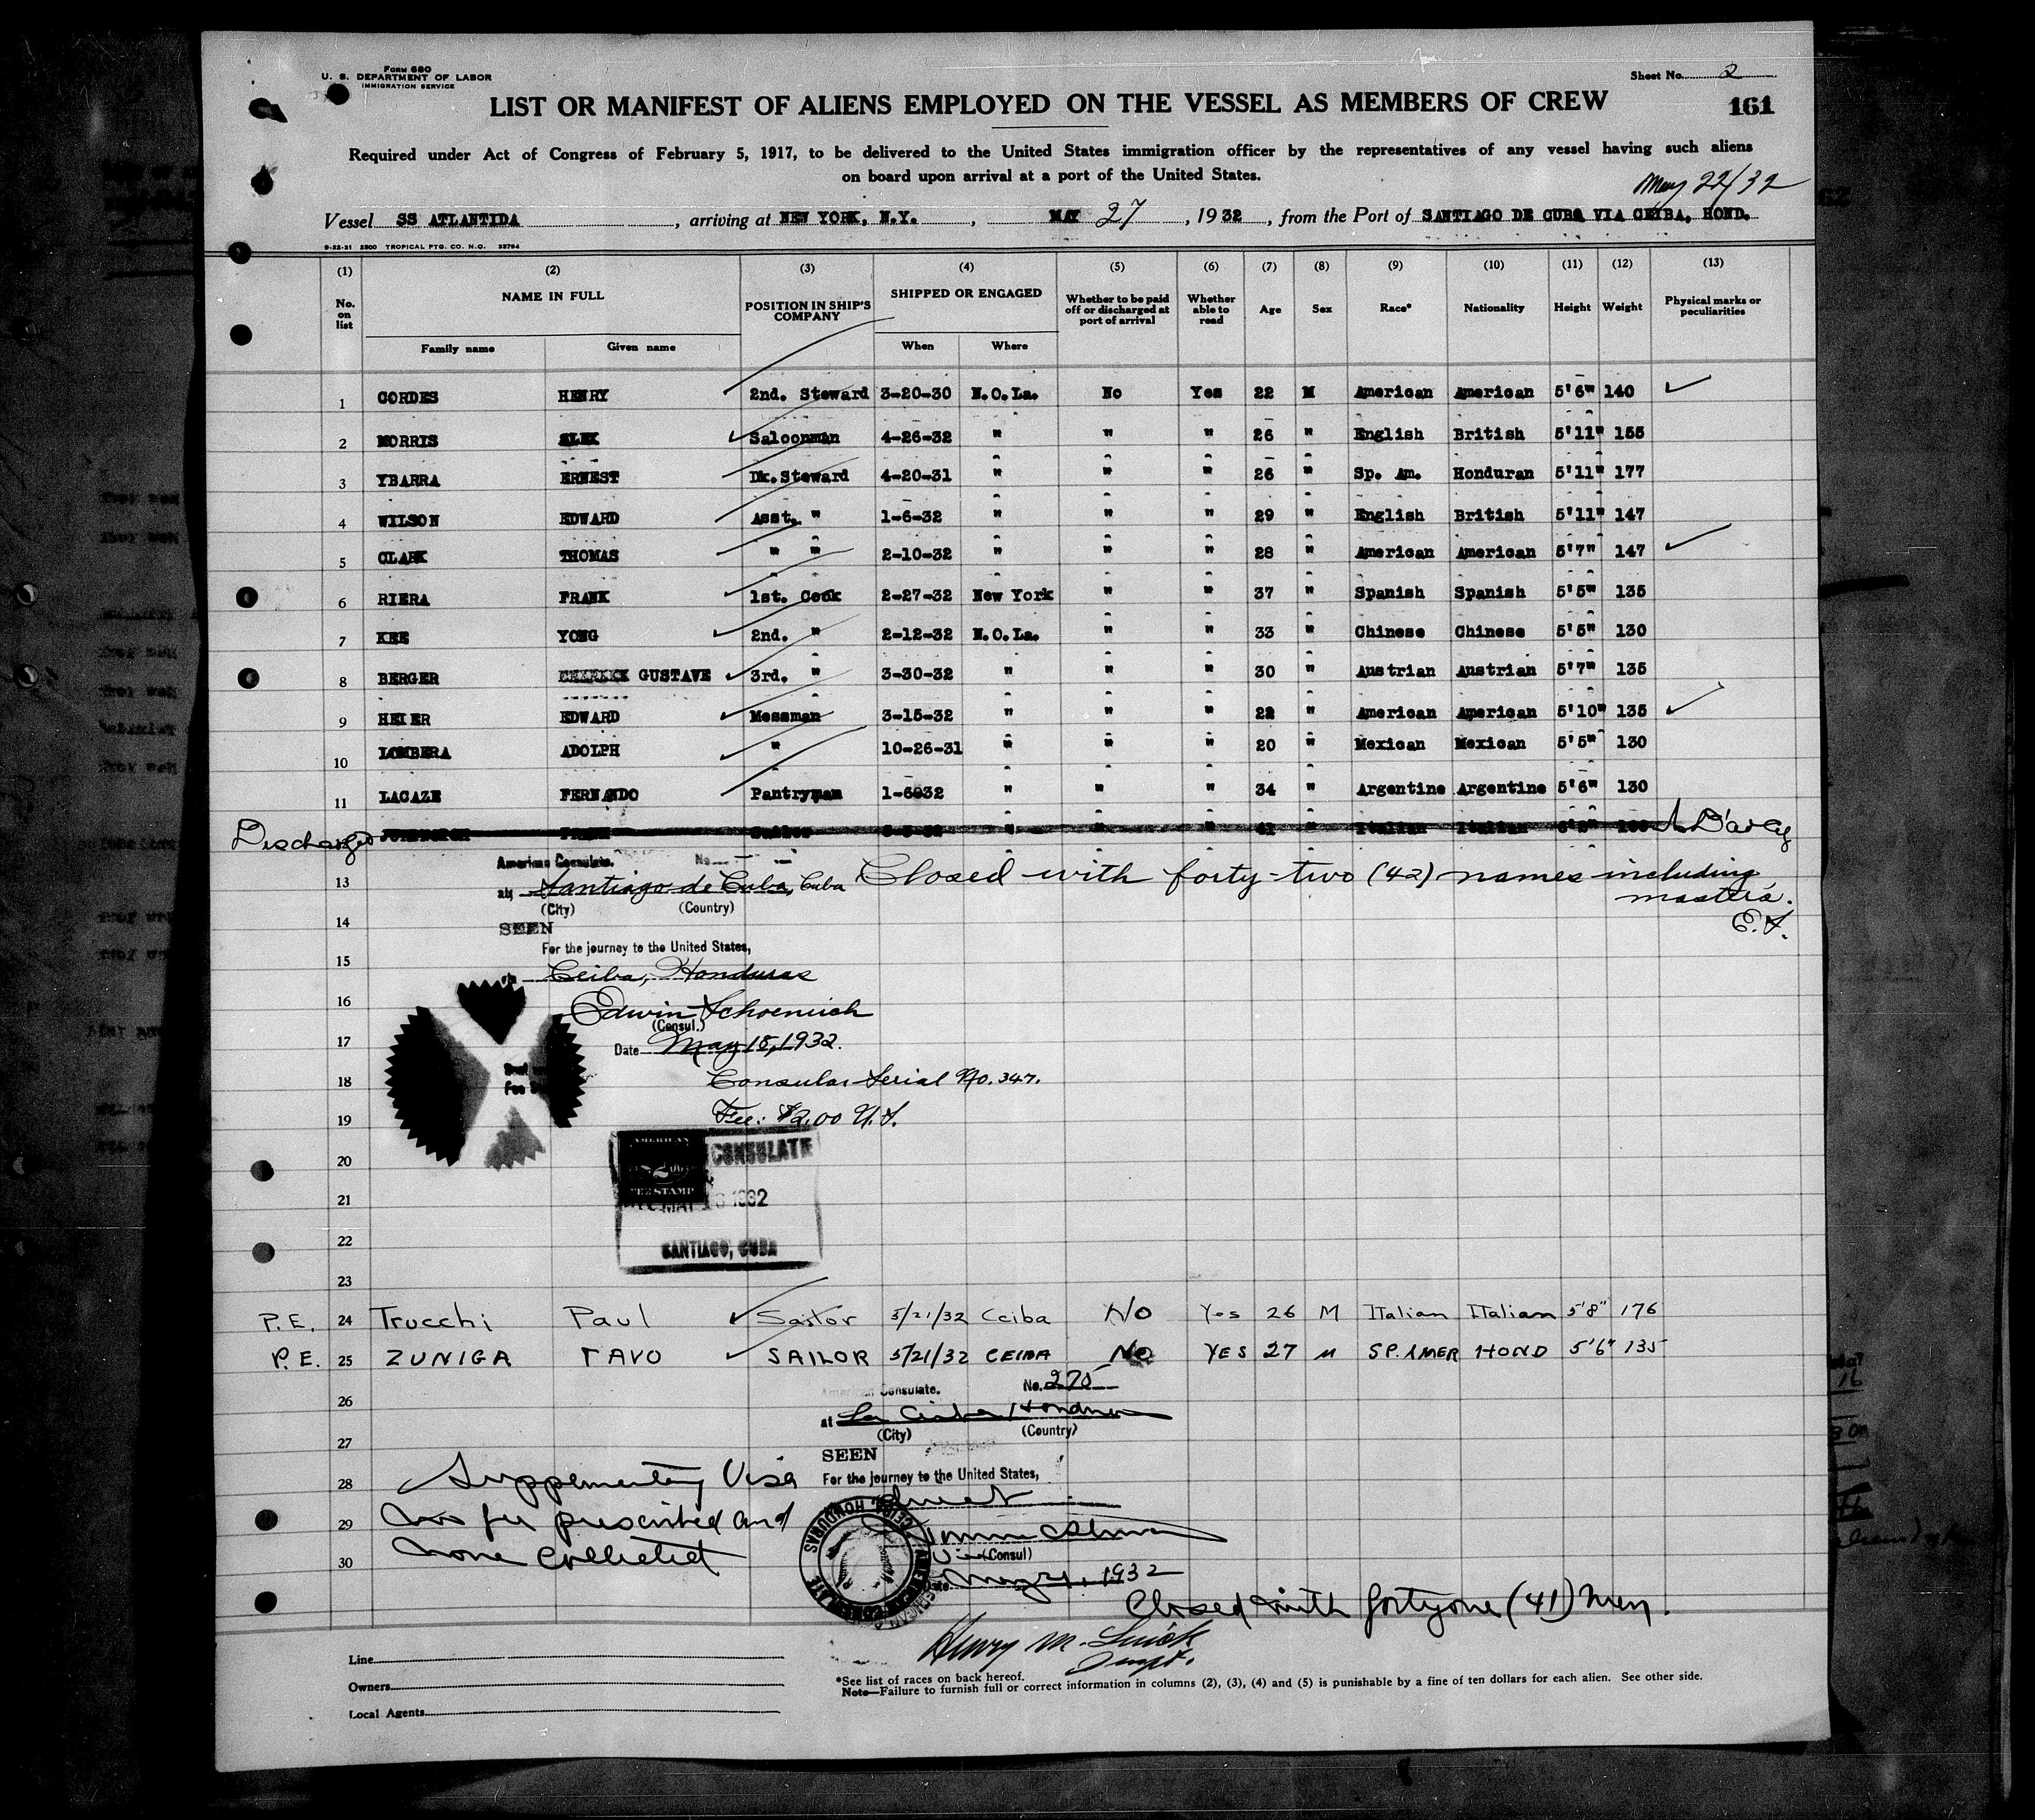 Form 680
U. S. DEPARTMENT OF LABOR
IMMIGRATION SERVICE
Sheet No. 2
LIST OR MANIFEST OF ALIENS EMPLOYED ON THE VESSEL AS MEMBERS OF CREW
161
Required under Act of Congress of February 5, 1917, to be delivered to the United States immigration officer by the representatives of any vessel having such aliens
on board upon arrival at a port of the United States.
May 22/32
Vessel SS ATLANTIDA, arriving at NEW YORK, N.Y., MAY 27, 1932, from the Port of SANTIAGO DE CUBA VIA CEIBA, HOND.
9-22-31 2500 TROPICAL PTG. CO. N.O. 33794
(1) (2) (3) (4) (5) (6) (7) (8) (9) (10) (11) (12) (13)
No. on list NAME IN FULL POSITION IN SHIP'S COMPANY SHIPPED OR ENGAGED Whether to be paid off or discharged at port of arrival Whether able to read Age Sex Race* Nationality Height Weight Physical marks or peculiarities
Family name Given name When Where
1 CORDES HENRY 2nd. Steward 3-20-30 N.O.La. No Yes 22 M American American 5'6" 140
2 MORRIS ALEX Saloonman 4-26-32 " " " 26 " English British 5'11" 155
3 YBARRA ERNEST Dk.Steward 4-20-31 " " " 26 " Sp. Am. Honduran 5'11" 177
4 WILSON EDWARD Asst. " 1-6-32 " " " 29 " English British 5'11" 147
5 CLARK THOMAS " " 2-10-32 " " " 28 " American American 5'7" 147
6 RIERA FRANK 1st. Cook 2-27-32 New York " " 37 " Spanish Spanish 5'5" 135
7 KEE YONG 2nd. " 2-12-32 N.O.La. " " 33 " Chinese Chinese 5'5" 130
8 BERGER GUSTAVE 3rd. " 3-30-32 " " " 30 " Austrian Austrian 5'7" 135
9 HEIER EDWARD Messman 3-15-32 " " " 22 " American American 5'10" 135
10 LOMBERA ADOLPH " 10-26-31 " " " 20 " Mexican Mexican 5'5" 130
11 LACAZE FERNANDO Pantryman 1-6032 " " " 34 " Argentine Argentine 5'6" 130
Discharged Sailor " " " 41 " Italian Italian D'arcy
American Consulate. No.
13 at Santiago de Cuba, Cuba Closed with forty-two (42) names including
master's.
(City) (Country)
14 SEEN E.S.
For the journey to the United States,
15 via Ceiba, Honduras
16 Edwin Schoenrich
(Consul.)
17 Date May 18, 1932.
18 Consular Serial No. 347.
19 Fee: $2.00 U.S.
20 AMERICAN CONSULATE
FEE STAMP
21 MAY 18 1932
22 SANTIAGO, CUBA
23
P.E. 24 Trucchi Paul Sailor 5/21/32 Ceiba No Yes 26 M Italian Italian 5'8" 176
P.E. 25 ZUNIGA TAVO SAILOR 5/21/32 CEIBA No YES 27 M SP. AMER HOND 5'6" 135
American Consulate. No. 275
26 at La Ceiba, Honduras
(City) (Country)
27 SEEN
28 Supplementary Visa For the journey to the United States,
29 No fee prescribed and
30 None Collected
Vice (Consul)
AMERICAN CONSULATE CEIBA, HONDURAS
Date May 21, 1932
Closed with fortyone (41) Men.
Henry M.
Line
Owners
Local Agents
*See list of races on back hereof.
Note—Failure to furnish full or correct information in columns (2), (3), (4) and (5) is punishable by a fine of ten dollars for each alien. See other side.